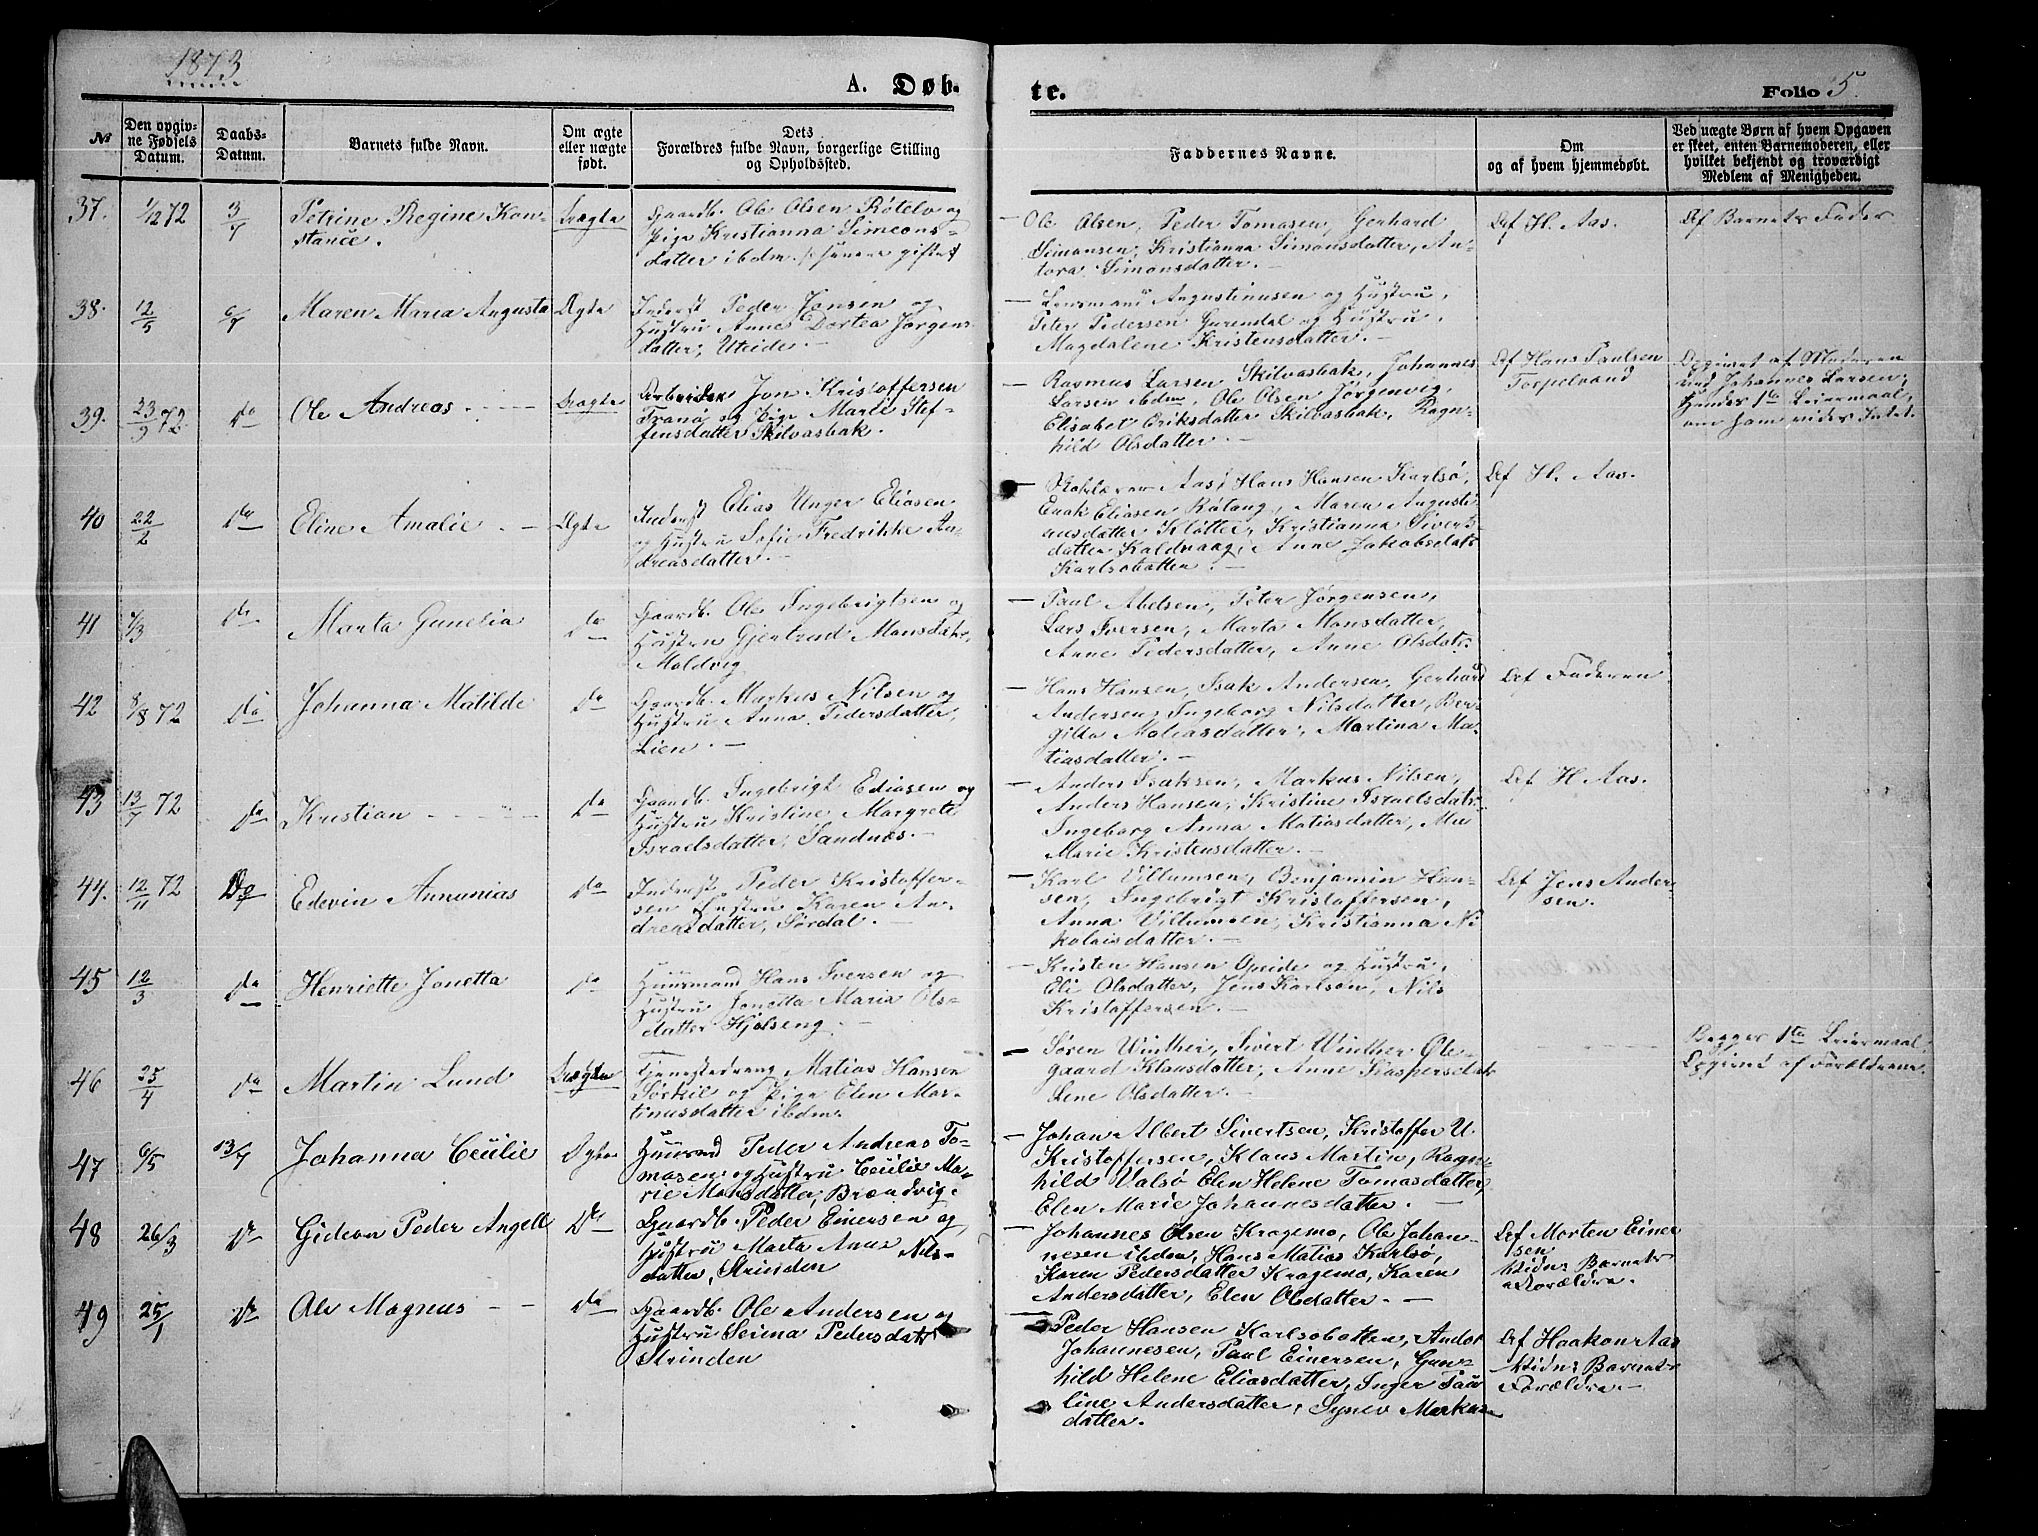 1873
A. Døb-
te.
Folio 5.
№
Den opgiv-
ne Fødsels
Datum.
Daabs-
Datum.
Barnets fulde Navn.
Om ægte
eller uægte
født.
Dets
Forældres fulde Navn, borgerlige Stilling
og Opholdssted.
Faddernes Navne.
Om
og af hvem hjemmedøbt.
Ved uægte Børn af hvem Opgaven
er skeet, enten Barnemoderen, eller
hvilket bekjendt og troværdigt
Medlem af Menigheden.
37.
1/12 72
3/7
Petrine Regine Kon-
stance.
Uægte
Gaardb. Ole Olsen Røtelv og
Pige Kristianna Simeons-
datter ibdm.
Ole Olsen, Peder Tomasen, Gerhard
Simonsen, Kristianna Simonsdatter, An-
tora Simonsdatter. —
Af H. Aas.
Af Barnets Fader
38.
12/5
6/7
Maren Maria Augusta
Ægte
Inderst Peder Jonsen og
Hustru Anne Dortea Jørgens-
datter, Uteide. —
— Lensmand Augustinusen og Hustru,
Peter Pedersen Gurendal og Hustru,
Magdalene Kristensdatter. —
39.
23/9 72
Do
Ole Andreas.
Uægte
Arbeider Jon Kristoffersen
Tranø og Pige Marie Stef-
fensdatter Skilvasbak.
— Rasmus Larsen Skilvasbak, Johannes
Larsen ibdm, Ole Olsen Jørgenvig,
Elisabet Eriksdatter Skilvasbak, Ragn-
hild Olsdatter. —
Af Hans Paulsen
Torpelvand
Opgivet af Moderen
ved Johannes Larsen;
Hendes 1te Leiermaal,
om ham vides Intet.
40
22/2
Do
Eline Amalie
Ægte
Inderst Elias Unger Eliasen
og Hustru Sofie Fredrikke An-
dreasdatter. —
Aas, Hans Hansen Karlsø,
Enok Eliasen Røtang, Maren Augusti-
nusdatter Kløtter, Kristianna Siverts-
datter Kaldvaag, Anne Jakobsdatr
Karlsøbatten. —
Af H. Aas.
41
4/3
Do
Marta Gunelia
Do
Gaardb. Ole Ingebrigtsen og
Hustru Gjertrud Monsdatr,
Moldvig
— Paul Abelsen, Peter Jørgensen,
Lars Iversen, Marta Monsdatter,
Anne Pedersdatter, Anne Olsdatr.
42
8/8 72
Do
Johanna Matilde
Do
Gaardb. Markus Nilsen og
Hustru Anna Pedersdatter,
Lien. —
— Hans Hansen, Isak Andersen, Gerhard
Andersen, Ingeborg Nilsdatter, Ber-
gitta Matiasdatter, Martina Ma-
tiasdatter. —
Af Faderen
43
13/7 72
Do
Kristian
Do
Gaardb. Ingebrigt Ediasen og
Hustru Kristine Margrete
Israelsdatter, Sandnæs. —
— Anders Isaksen, Markus Nilsen,
Anders Hansen, Kristine Israelsdatr.
Ingeborg Anna Matiasdatter,
Marie Kristensdatter. —
Af H. Aas.
44.
12/11 72
Do
Edevin Annanias
Do
Inderst Peder Kristoffer-
sen Hustru Karen An-
dreasdatter, Sørdal. —
— Karl Villumsen, Benjamin Han-
sen, Ingebrigt Kristoffersen,
Anna Villumsen, Kristianna Ni-
kolaisdatter. —
Af Jens Ander-
sen.
45
12/3
Do
Henriette Jonetta
Do
Huusmand Hans Iversen og
Hustru Jonetta Maria Ols-
datter Hjelseng. —
— Kristen Hansen Opeide og Hustru,
Eli Olsdatter, Jens Karlsen, Nils
Kristoffersen. —
46
25/4
Do
Martin Lund
Uægte
Tjenestedreng Matias Hansen
Sørkil og Pige Elen Mar-
tinusdatter ibdm.
— Søren Winther, Sivert Winther Ole-
gaard Klausdatter, Anne Kaspersdatr
Lene Olsdatter. —
Begges 1te Leiermaal.
Opgivet af Forældrene.
47
6/5
13/7
Johanna Cecilie
Ægte
Huusmd Peder Andreas To-
masen og Hustru Cecilie Ma-
rie Monsdatter, Brændvig.
— Johan Albert Sivertsen, Kristoffer U.
Kristoffersen, Klaus Martin, Ragn-
hild Valsø Elen Helene Tomasdatter,
Elen Marie Johannesdatter. —
48
26/3
Do
Gideon Peder Angell
Do
Gaardb. Peder Einersen og
Hustru Marta Anna Nils-
datter, Strinden
— Johannes Olsen Kragemo, Ole Johan-
nesen ibdm, Hans Matias Karlsø,
Karen Pedersdatter Kragemo, Karen
Andersdatter, Elen Olsdatter. —
Af Morten Einer
sen
Vidn: Barnets
Forældre.
49
25/1
Do
Ole Magnus
Do
Gaardb. Ole Andersen og
Hustru Serina Pedersdatr
Strinden
— Peder Hansen Karlsøbatten, Andor
Johannesen, Paul Einersen, Gun-
hild Helene Eliasdatter, Inger Pau-
line Andersdatter, Synev Markus-
datter.
Af Haakon Aas
Vidn: Barnets
Forældre. —